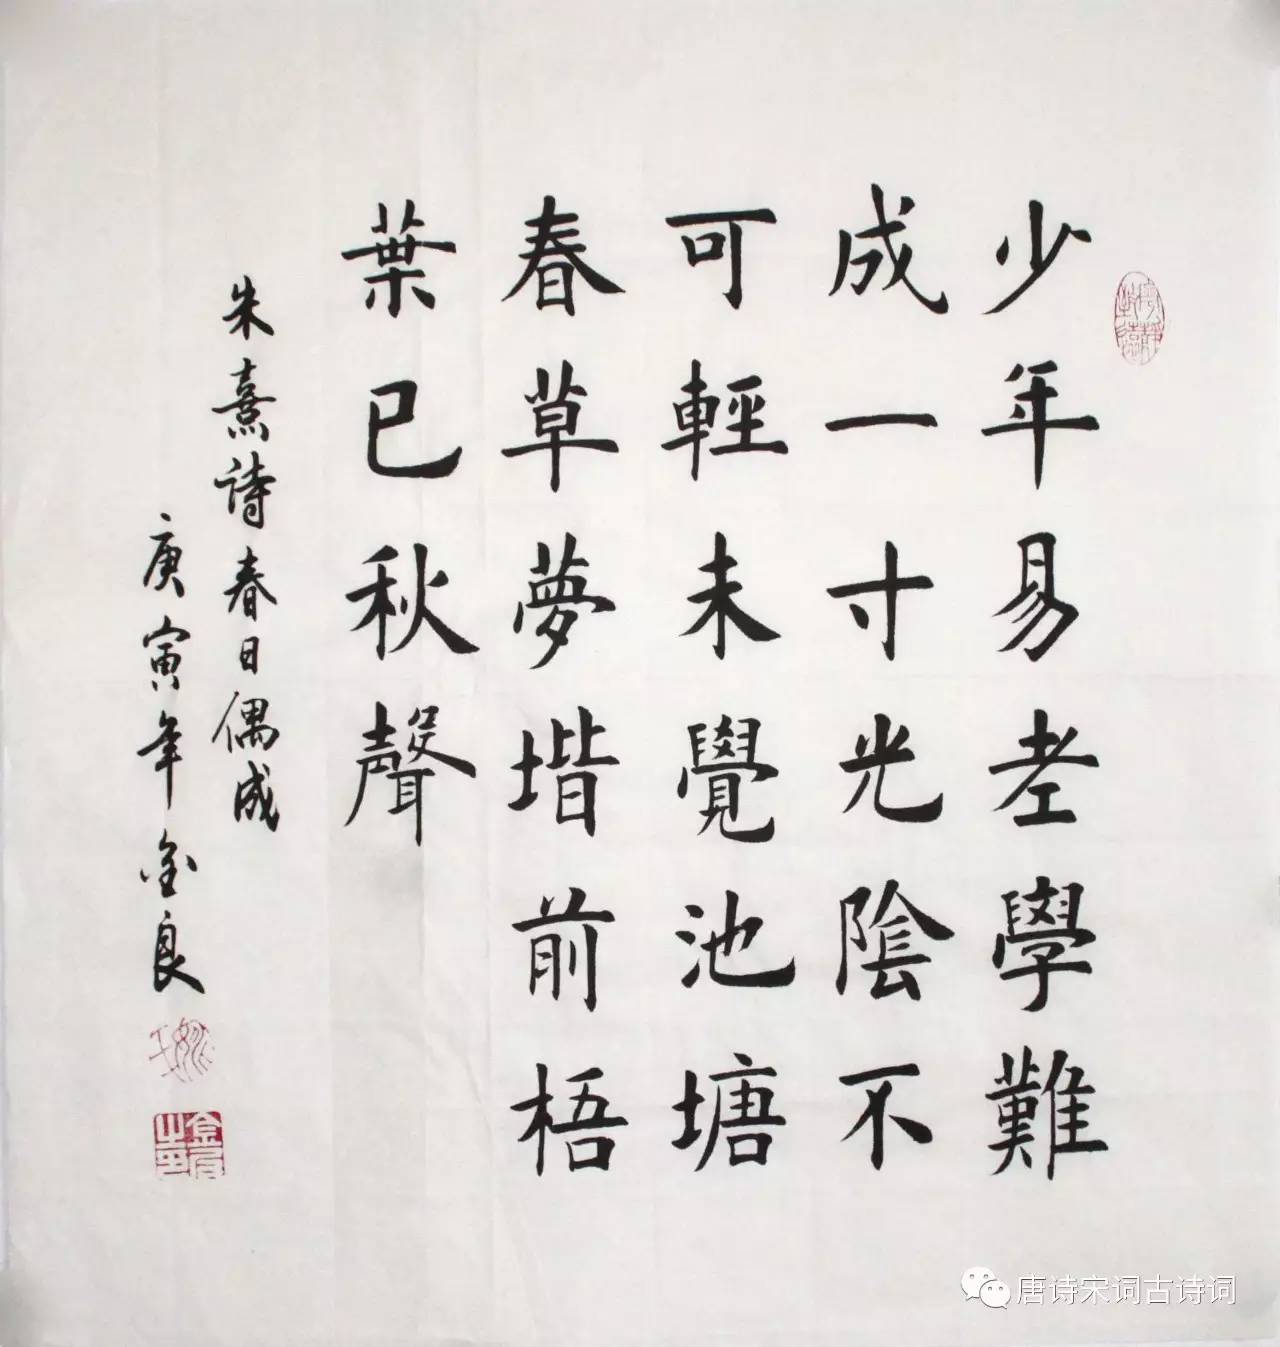 少年易老學難
成一寸光陰不
可輕未覺池塘
春草夢堦前梧
葉已秋聲
朱熹诗春日偶成
庚寅年金良
唐诗宋词古诗词